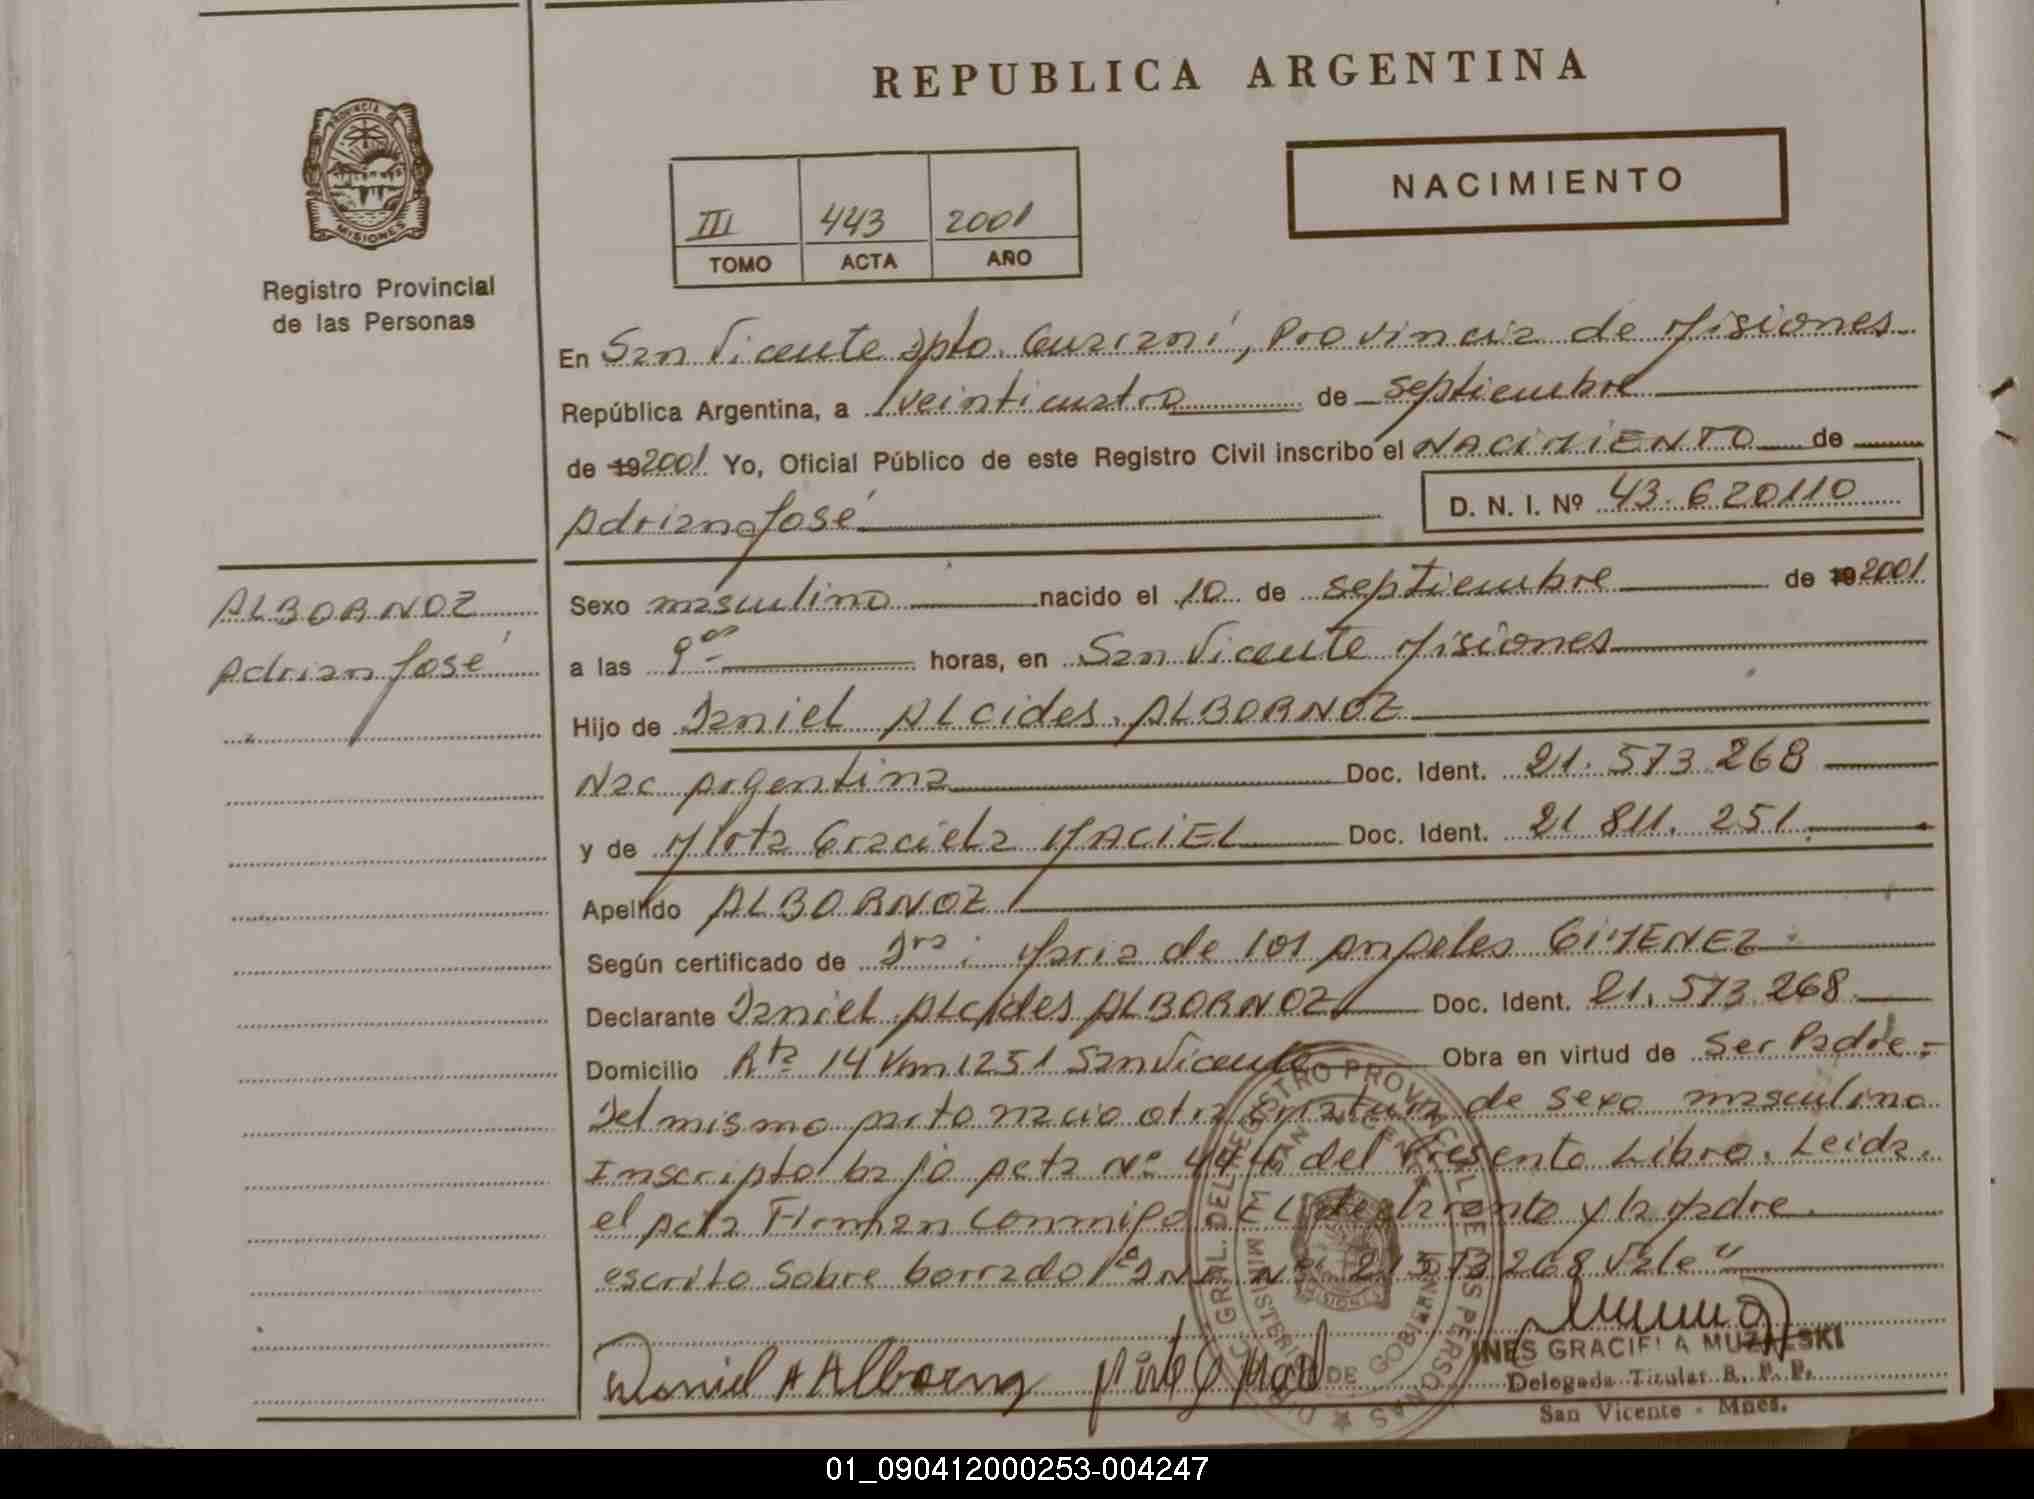 REPUBLICA ARGENTINA
PROVINCIA DE
MISIONES
Registro Provincial
de las Personas
III 443 2001
TOMO ACTA AÑO
NACIMIENTO
En San Vicente Dpto. Guaraní, Provincia de Misiones
República Argentina, a veinticuatro de septiembre
de 19 2001 Yo, Oficial Público de este Registro Civil inscribo el NACIMIENTO de
Adriano José
D. N. I. Nº 43.620110
ALBORNOZ
Adrian José
Sexo masculino nacido el 10 de septiembre de 19 2001
a las 9 horas, en San Vicente Misiones
Hijo de Daniel Alcides ALBORNOZ
Nac Argentina Doc. Ident. 21.573.268
y de Mirta Graciela MACIEL Doc. Ident. 21 811.251
Apellido ALBORNOZ
Según certificado de Dra: Maria de los Angeles GIMENEZ
Declarante Daniel Alcides ALBORNOZ Doc. Ident. 21.573.268
Domicilio Rta 14 Km 1251 San Vicente Obra en virtud de Ser Padre
Del mismo parto nacio otra criatura de sexo masculino
Inscripto bajo Acta Nº del Presente Libro. Leida
el Acta Firman conmigo El declarante y la Madre
escrito sobre borrado "DNI Nº 21573268 Vale"
Daniel A Albornoz
INES GRACIELA MUZALSKI
Delegada Titular R. P. P.
San Vicente - Mnes.
DIREC. GRAL. DEL REGISTRO PROVINCIAL DE LAS PERSONAS
SAN VICENTE
MINISTERIO DE GOBIERNO
MISIONES
01_090412000253-004247